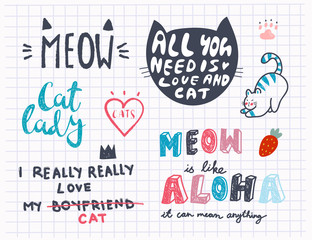 MEOW
ALL YOU
NEED IS
LOVE AND
CAT
Cat
lady
CATS
I REALLY REALLY
LOVE
MY BOYFRIEND
CAT
MEOW
is like
ALOHA
it can mean anything